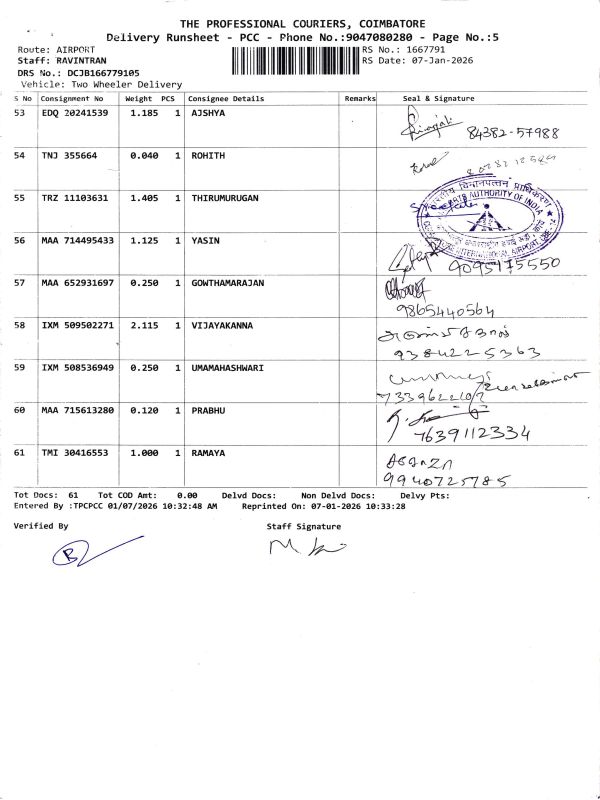 THE PROFESSIONAL COURIERS, COIMBATORE
Delivery Runsheet - PCC - Phone No.:9047080280 - Page No.:5
Route: AIRPORT
RS No.: 1667791
Staff: RAVINTRAN
RS Date: 07-Jan-2026
DRS No.: DCJB166779105
Vehicle: Two Wheeler Delivery
S No Consignment No Weight PCS Consignee Details Remarks Seal & Signature
53 EDQ 20241539 1.185 1 AJSHYA
84382-57988
54 TNJ 355664 0.040 1 ROHITH
55 TRZ 11103631 1.405 1 THIRUMURUGAN
भारतीय विमानपत्तन प्राधिकरण
AUTHORITY OF INDIA
INTERNATIONAL AIRPORT, CBE-14
56 MAA 714495433 1.125 1 YASIN
9095175550
57 MAA 652931697 0.250 1 GOWTHAMARAJAN
9865440564
58 IXM 509502271 2.115 1 VIJAYAKANNA
9384225363
59 IXM 508536949 0.250 1 UMAMAHASHWARI
7339622107
60 MAA 715613280 0.120 1 PRABHU
7639112334
61 TMI 30416553 1.000 1 RAMAYA
9940725785
Tot Docs: 61 Tot COD Amt: 0.00 Delvd Docs: Non Delvd Docs: Delvy Pts:
Entered By :TPCPCC 01/07/2026 10:32:48 AM Reprinted On: 07-01-2026 10:33:28
Verified By
Staff Signature
B